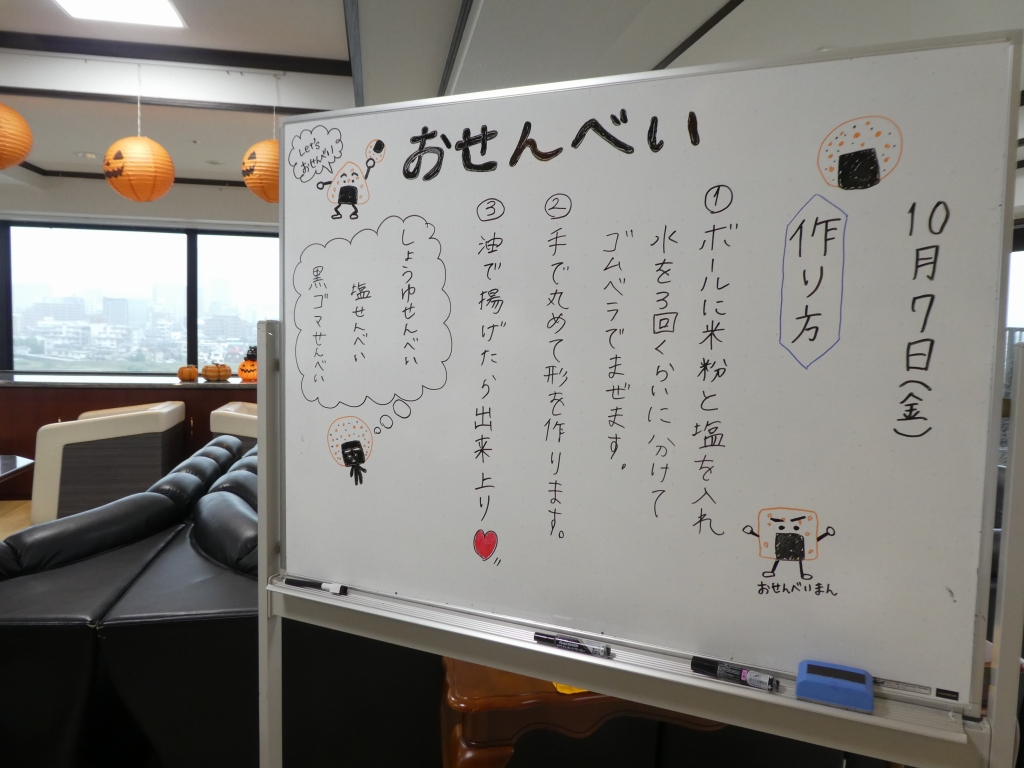 おせんべい
10月7日(金)
作り方
①ボールに米粉と塩を入れ
水を3回くらいに分けて
ゴムベラでまぜます。
②手で丸めて形を作ります。
③油で揚げたら出来上り
Let's
おせんべい
しょうゆせんべい
塩せんべい
黒ゴマせんべい
おせんべいまん